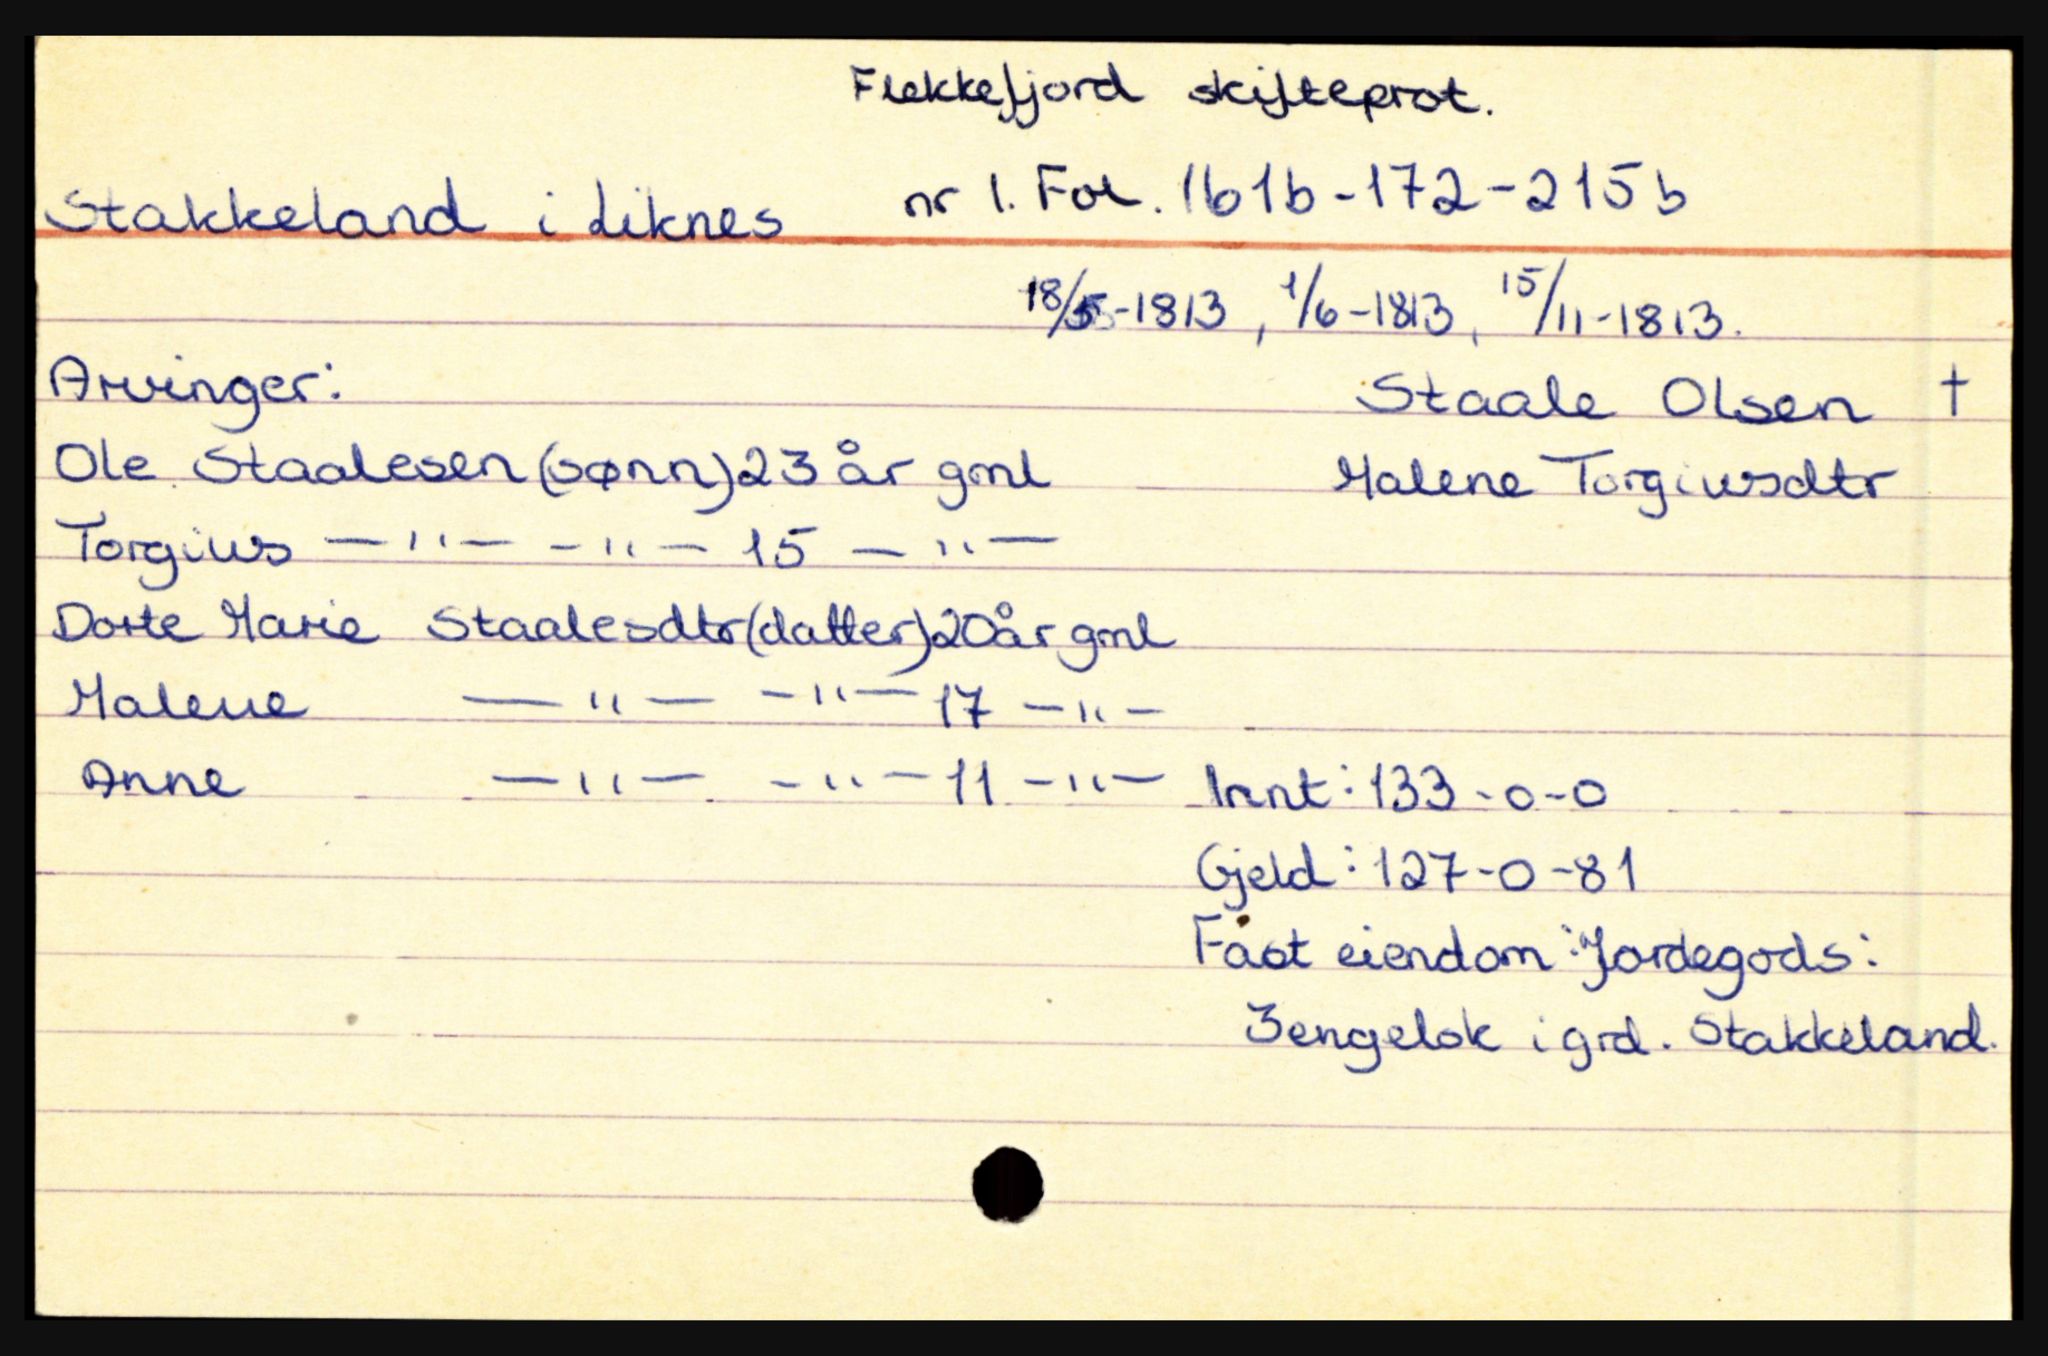 Flekkefjord skifteprot.
Stakkeland i Liknes nr 1. Fol. 161b-172-215b
18/5-1813, 1/6-1813, 15/11-1813.
Arvinger: Staale Olsen †
Ole Staalesen (sønn) 23 år gml Malene Torgiusdtr
Torgius —"— -"— 15 —"—
Dorte Marie Staalesdtr (datter) 20 år gml
Malene —"— -"— 17 -"-
Anne —"— -"— 11 -"— Innt: 133-0-0
Gjeld: 127-0-81
Fast eiendom: Jordegods:
3 engelsk i grd. Stakkeland.